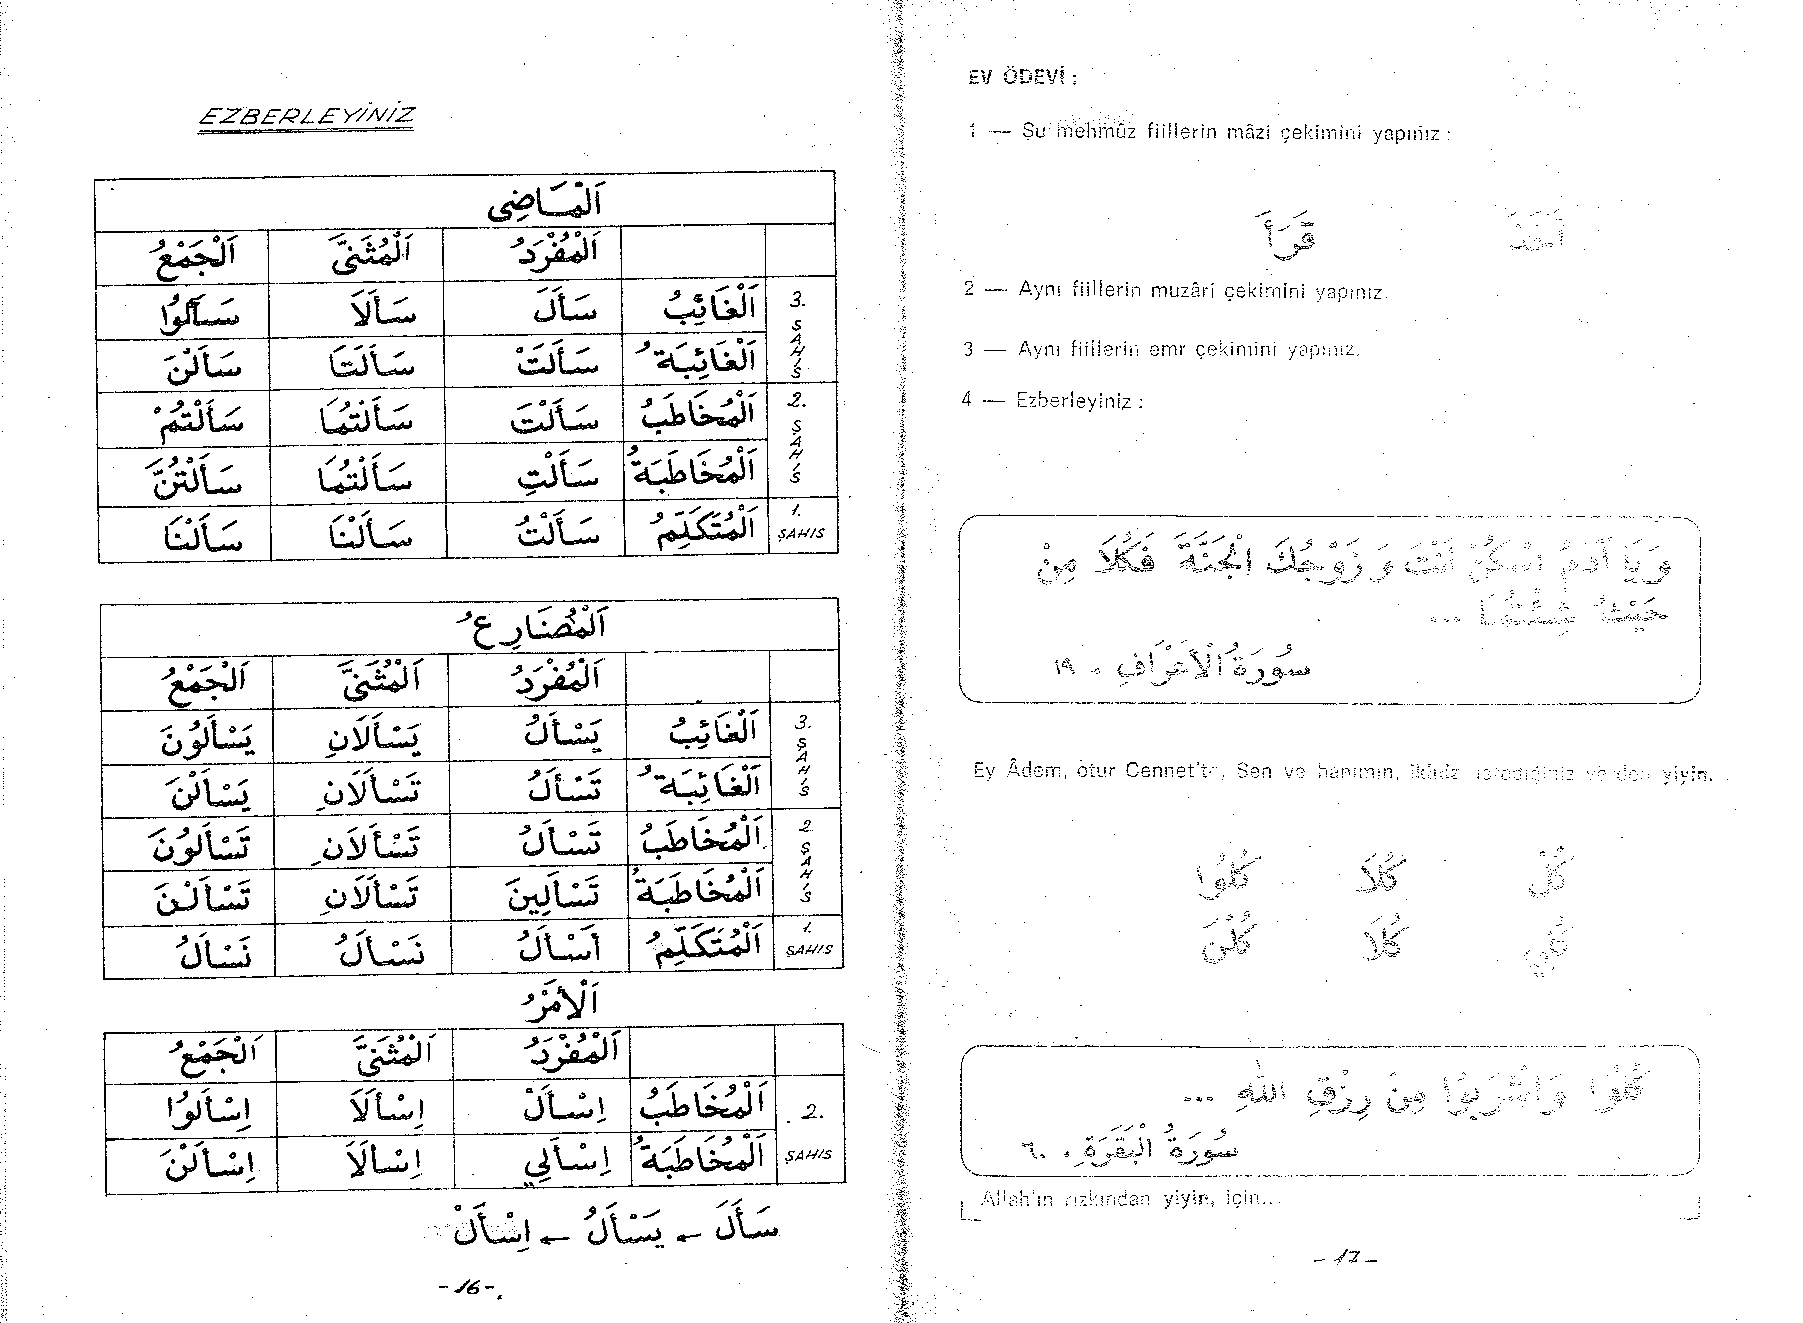 EZBERLEYİNİZ
اَلْمَاضِى
اَلْمُفْرَدُ اَلْمُثَنىَّ اَلْجَمْعُ
3. ŞAHIS اَلْغَائِبُ سَأَلَ سَأَلَا سَأَلُوا
اَلْغَائِبَةُ سَأَلَتْ سَأَلَتَا سَأَلْنَ
2. ŞAHIS اَلْمُخَاطَبُ سَأَلْتَ سَأَلْتُمَا سَأَلْتُمْ
اَلْمُخَاطَبَةُ سَأَلْتِ سَأَلْتُمَا سَأَلْتُنَّ
1. ŞAHIS اَلْمُتَكَلِّمُ سَأَلْتُ سَأَلْنَا سَأَلْنَا
اَلْمُضَارِعُ
اَلْمُفْرَدُ اَلْمُثَنىَّ اَلْجَمْعُ
3. ŞAHIS اَلْغَائِبُ يَسْأَلُ يَسْأَلَانِ يَسْأَلُونَ
اَلْغَائِبَةُ تَسْأَلُ تَسْأَلَانِ يَسْأَلْنَ
2. ŞAHIS اَلْمُخَاطَبُ تَسْأَلُ تَسْأَلَانِ تَسْأَلُونَ
اَلْمُخَاطَبَةُ تَسْأَلِينَ تَسْأَلَانِ تَسْأَلْنَ
1. ŞAHIS اَلْمُتَكَلِّمُ أَسْأَلُ نَسْأَلُ نَسْأَلُ
اَلْأَمْرُ
اَلْمُفْرَدُ اَلْمُثَنىَّ اَلْجَمْعُ
2. ŞAHIS اَلْمُخَاطَبُ اِسْأَلْ اِسْأَلَا اِسْأَلُوا
اَلْمُخَاطَبَةُ اِسْأَلِي اِسْأَلَا اِسْأَلْنَ
سَأَلَ ← يَسْأَلُ ← اِسْأَلْ
- 16 -
EV ÖDEVİ :
1 — Şu mehmûz fiillerin mâzi çekimini yapınız :
أَخَذَ قَرَأَ
2 — Aynı fiillerin muzâri çekimini yapınız.
3 — Aynı fiillerin emr çekimini yapınız.
4 — Ezberleyiniz :
وَيَا آدَمُ اسْكُنْ اَنْتَ وَ زَوْجُكَ الْجَنَّةَ فَكُلَا مِنْ
حَيْثُ شِئْتُمَا ...
سُورَةُ الْأَعْرَافِ ٠ ١٩
Ey Âdem, otur Cennet'te, Sen ve hanımın, ikiniz istediğiniz yerden yiyin...
كُلْ كُلَا كُلُوا
كُلِي كُلَا كُلْنَ
كُلُوا وَاشْرَبُوا مِنْ رِزْقِ اللهِ ...
سُورَةُ الْبَقَرَةِ ٠ ٦٠
Allah'ın rızkından yiyin, için...
- 17 -